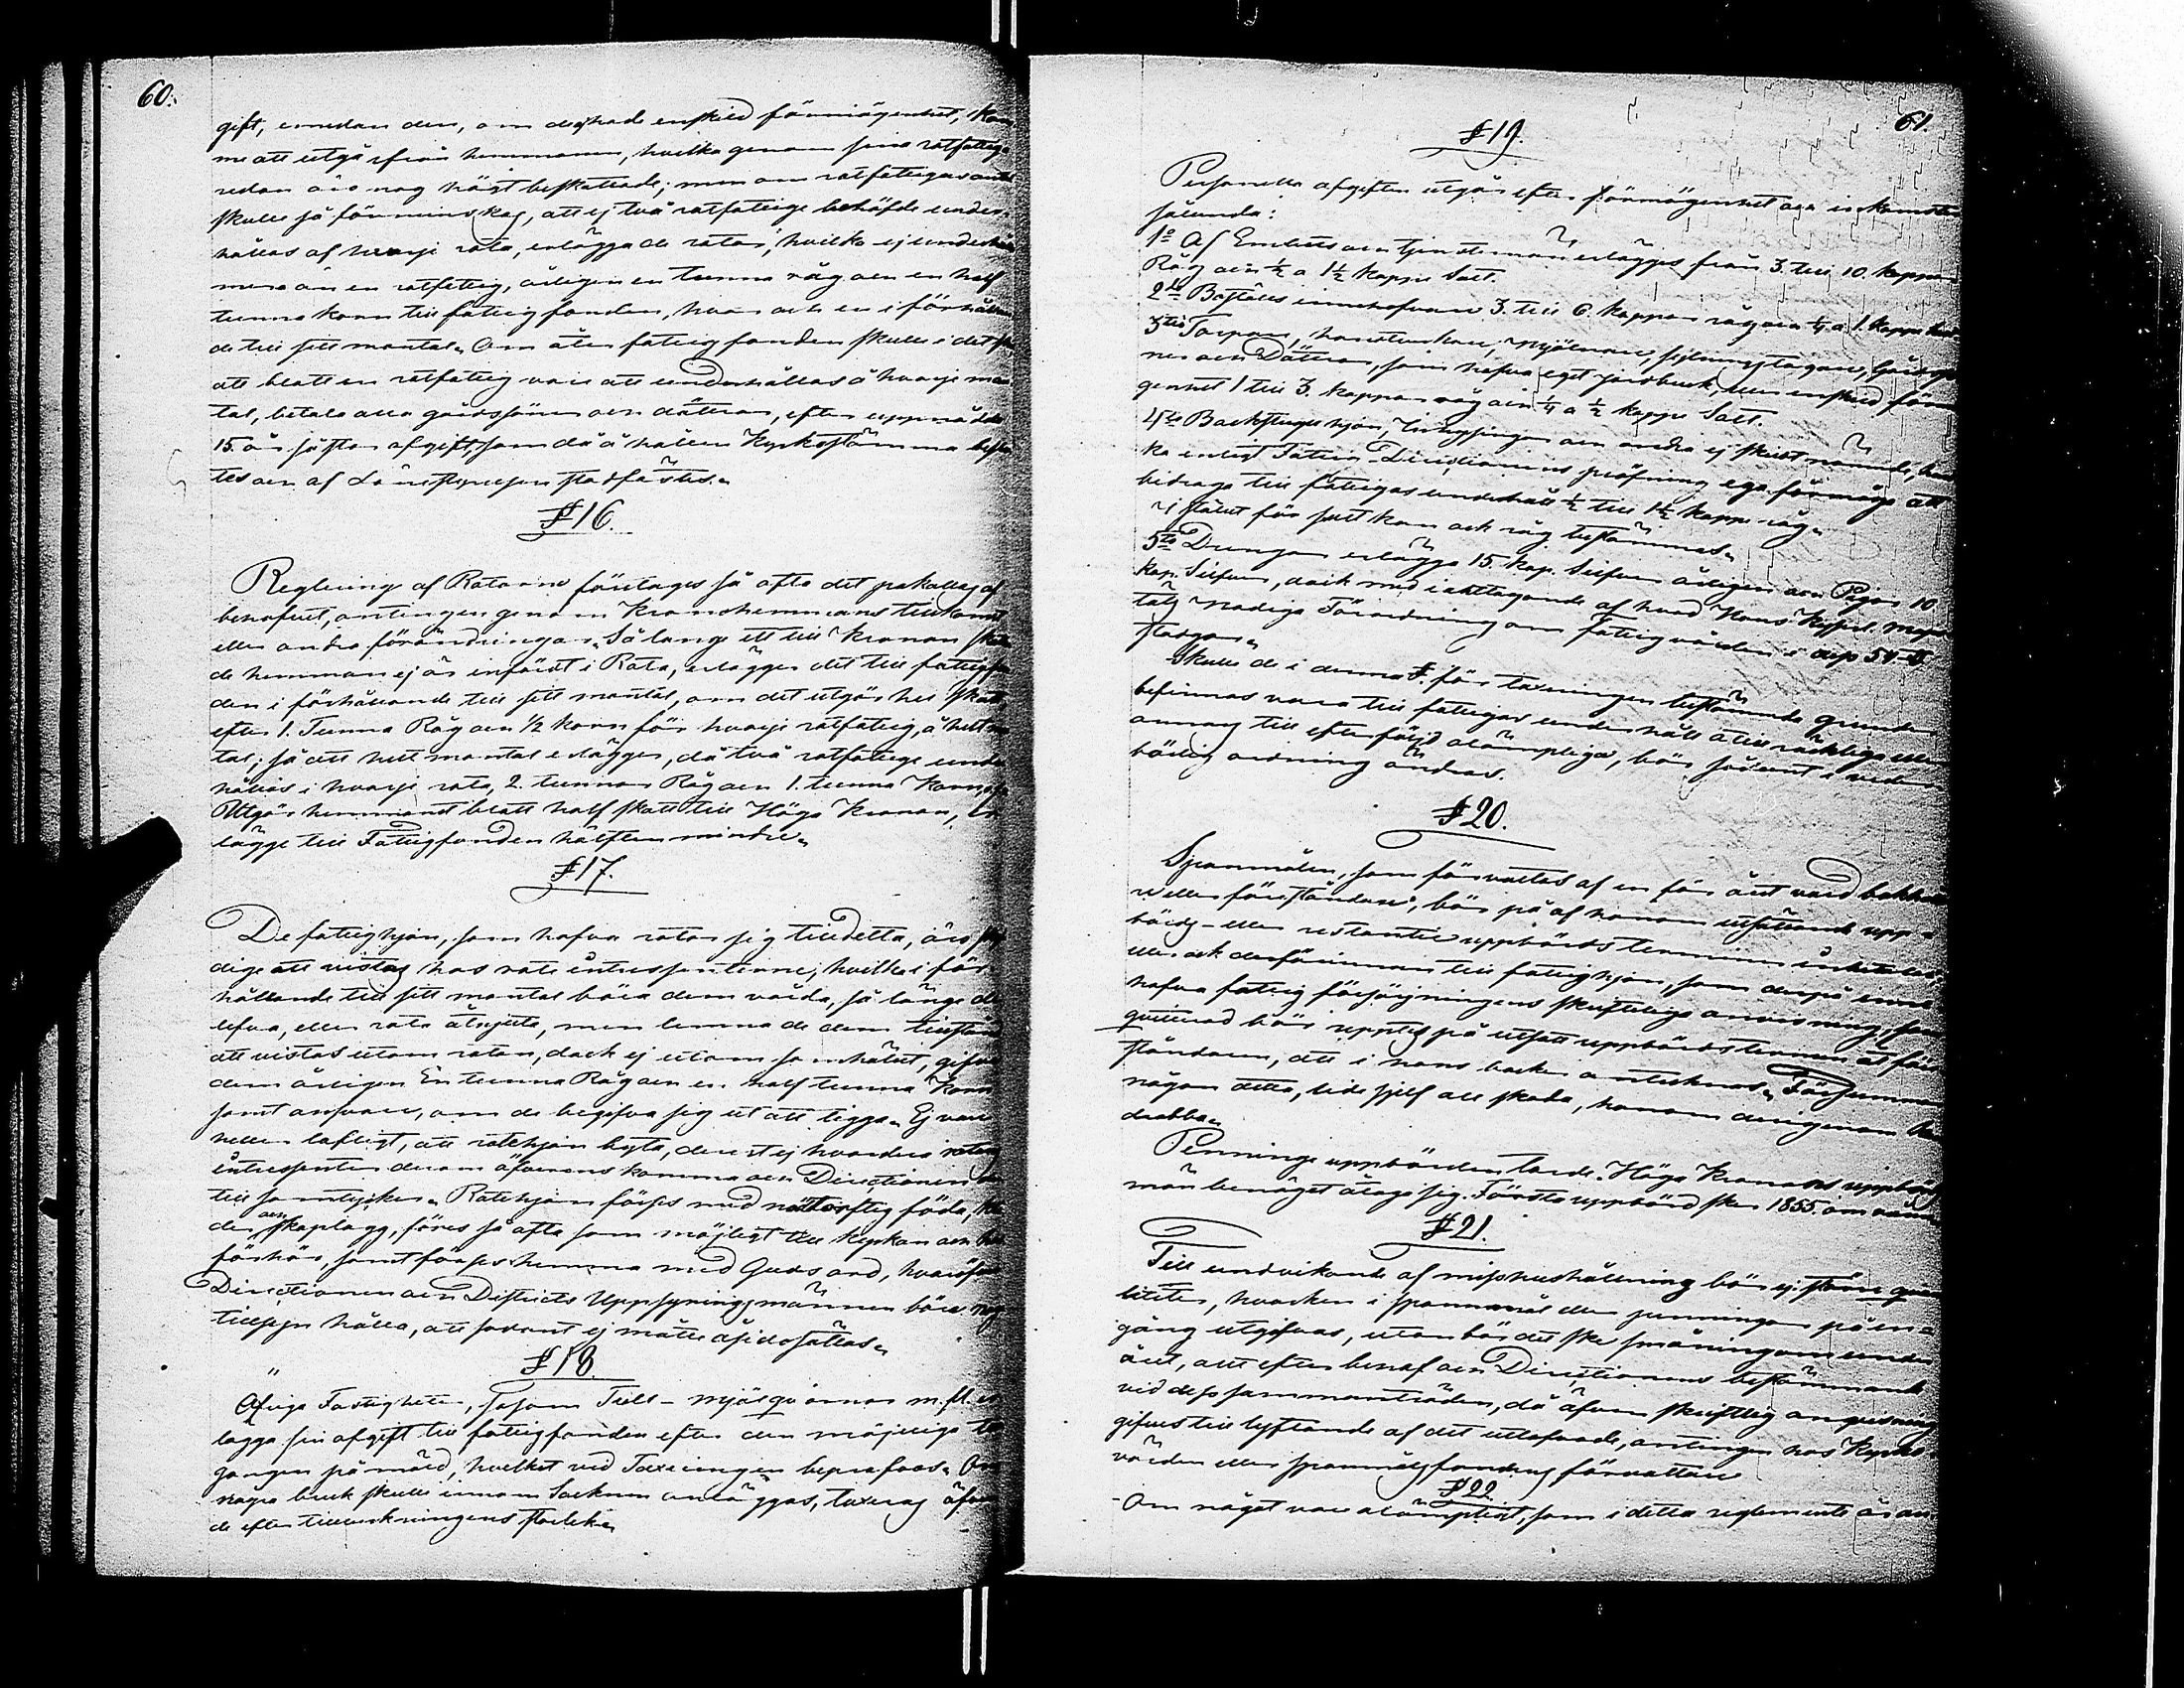 60.
gift, emedan den, om de hade enskild förmögenhet, kom-
me att utgå ifrån hemmanen, hvilka genom sina rotfattige
redan äro nog högt beskattade; men om rotfattigas antal
skulle så förminskas, att ej två rotfattige behöfde under-
hållas af hvarje rota, erlägga de rotar, hvilka ej underhålla
mera än en rotfattig, årligen en tunna råg och en half
tunna korn till fattigfonden, hvar och en i förhållan-
de till sitt mantal. Om åter fattigfonden skulle i det
att blott en rotfattig vore att underhållas å hvarje man-
tal, betala alla gårdssöner och döttrar, efter uppnådde
15. år sådan afgift, som då å hållen Kyrkostämma beslu-
tes och af Länsstyrelsen stadfästes.
§ 16.
Reglering af Rotarne företages så ofta det påkallas af
behofvet, antingen genom Kronohemmans tillkomst
eller andra förändringar. Så länge ett till Kronan
de hemman ej är infördt i Rota, erlägger det till fattigfon-
den i förhållande till sitt mantal, om det utgör hel skatt
efter 1. Tunna Råg och 1/2 korn för hvarje rotfattig, å helt man-
tal; så att helt mantal erlägger, då två rotfattige under-
hållas i hvarje rota, 2. tunnor Råg och 1. tunna Korn,
Utgör hemmanet blott half skatt till Höga Kronan, er-
lägge till Fattigfonden hälften mindre.
§ 17.
De fattighjon, som hafva rotar sig tilldelta, äro
dige att vistas hos rote intressenterne, hvilka i för-
hållande till sitt mantal böra dem vårda, så länge de
lefva, eller rota åtnjuta, men lemna de dem tillstånd
att vistas utom rotan, dock ej utom samhället, gifve
dem årligen En tunna Råg och en half tunna Korn
samt ansvare, om de begifva sig ut att tigga. Ej vare
heller lofligt, att rotehjon byta, derest ej hvarderas rotes
intressenter derom öfverens komma och Directionen
till samtycker. Rotehjon förses med nödtorftig föda, klä-
der och skoplagg, föres så ofta som möjligt till kyrkan och
förhör, samt förses hemma med Guds ord, hvaröfver
Directionen och Districts Uppsyningsmännen böra nog
tillsyn hålla, att sådant ej måtte åsidosättas.
§ 18.
Öfriga Fastigheter, såsom Tull- mjölqvarnar m. fl. er-
lägga sin afgift till fattigfonden efter den möjliga till-
gången på mäld, hvilket vid Taxeringen beprofvas. Om
några bruk skulle innom Socknen anläggas, taxeras äfven
de efter tillverkningens storlek.
61.
§ 19.
Personella afgiften utgår efter förmögenhet och inkomster
sålunda:
1o Af Embets och tjenstemän erlägges från 3. till 10. kappar
Råg och 1/2 a 1 1/2 kappe Salt.
2do Boställs innehafvare 3. till 6. kappar råg och 1/4 a 1. kappe
3tio Torpare, handtverkare, Mjölnare, sysslingstagare, Gårds
ner och Döttrar, som hafva eget jordbruk, eller enskild förmö-
genhet 1 till 3. kappar råg och 1/4 a 1/2 kappe Salt.
4to Backstuguhjon, Inhysingar och andra ej skildt nämnde,
ka enligt Fattig-Directionens pröfning ega förmåga att
bidraga till fattigas underhåll 1/2 till 1 1/2 kappe råg.
i stället för salt kan ock råg bestämmas.
5to Drengar erlägga 15. kop. Silfver årligen och Pigor 10.
kop. Silfver, dock med iakttagande af hvad Hans Kejserl. Maje-
täts Nådiga Förordning om fattigvården i dess 54 §
stadgar.
Skulle de i denna §. för taxeringen bestämde grunder
befinnas vara till fattigas underhåll otillräckliga eller
annars till efterföljd olämpliga, bör sådant i ved
börlig ordning ändras.
§ 20.
Spanmålen, som förvaltas af en för året vald bokhålla-
re eller föreståndare, bör på af honom utsättande upp-
börds- eller restantie uppbörds terminer inbetalas,
eller ock derförinnan till fattighjon, som derpå inne
hafva fattig försörjningens skriftliga anvisning, som
qvitterad bör uppvisas på utsatt uppbörds termin åt före
ståndaren, att i hans bocker antecknas. Försummar
någon detta, lide sjelf all skada, honom derigenom
drabba.
Penninge uppbörden torde Höga Kronans uppbörds
män benäget åtaga sig. Första uppbörd sker 1855.
§ 21.
Till undvikande af misshushållning bör ej större qvan-
titeter, hvarken i spanmål eller penningar på en
gång utgifvas, utan bör det ske småningom under
året, allt efter behof och Directionens bestämmande
vid dess sammanträden, då äfven skriftlig anvisning
gifves till lyftande af det utlofvade, antingen hos Kyrko
värden eller spanmålsfondens förvaltare
§ 22.
Om något vore olämpligt, som i detta reglemente är an-